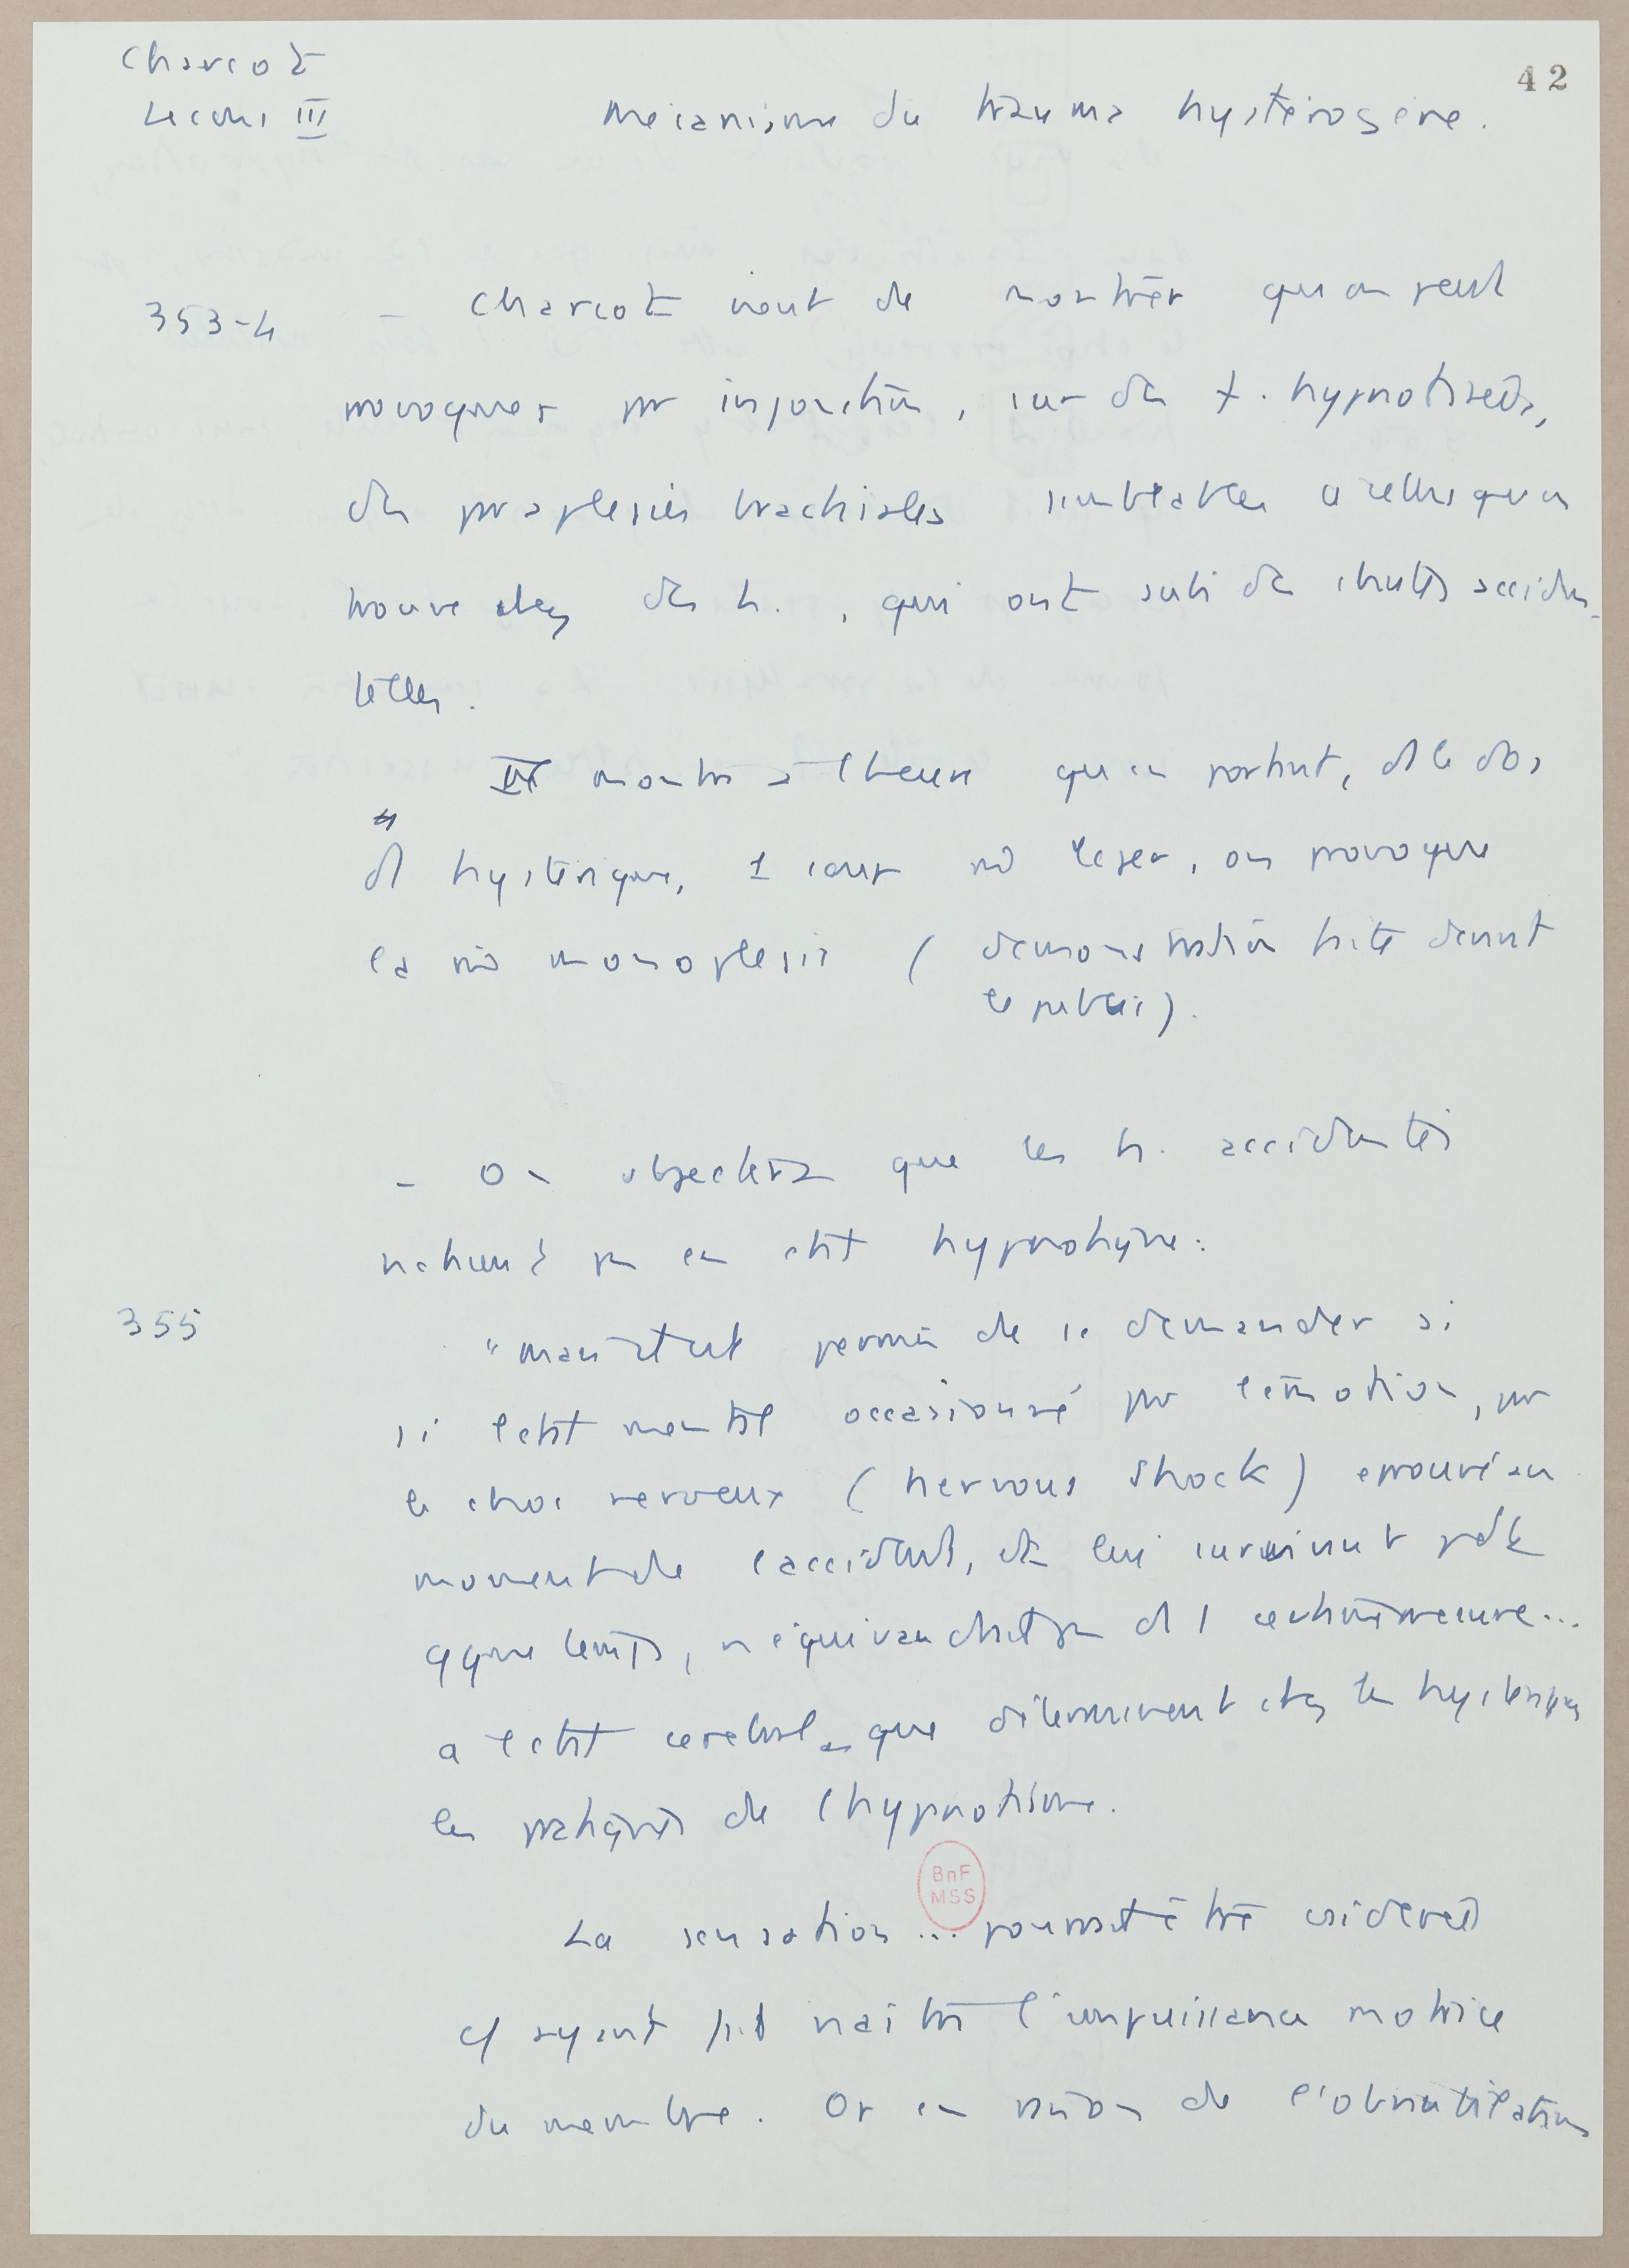 42
Charcot
Leçons III
Mécanisme du trauma hystérogène.
353-4
- Charcot vient de montrer qu'on peut
provoquer par injonction, sur des f. hypnotisées,
des paraplésies brachiales semblables à celles qu'on
trouve chez des h., qui ont subi des chutes acciden-
telles.
Il montre à l'heure qu'en portant, ds le dos
d' hystérique, 1 coup mê léger, on provoque
la mê monoplésie ( démonstration faite devant
le public).
- On objectera que les h. accidentés
n'étaient pas en état hypnotique:
355
"mais il est permis de se demander si
si l'état mental occasionné par l'émotion, par
le choc nerveux (nervous shock) éprouvé au
moment de l'accident, et lui survivant pdt
qque temps, n'équivaudrait pas ds 1 certaine mesure...
à l'état cérébral que déterminent chez les hystériques
les pratiques de l'hypnotisme.
BnF
MSS
La sensation ... pourrait être considérée
c/ ayant fait naître l'impuissance motrice
du membre. Or en raison de l'obnubilation